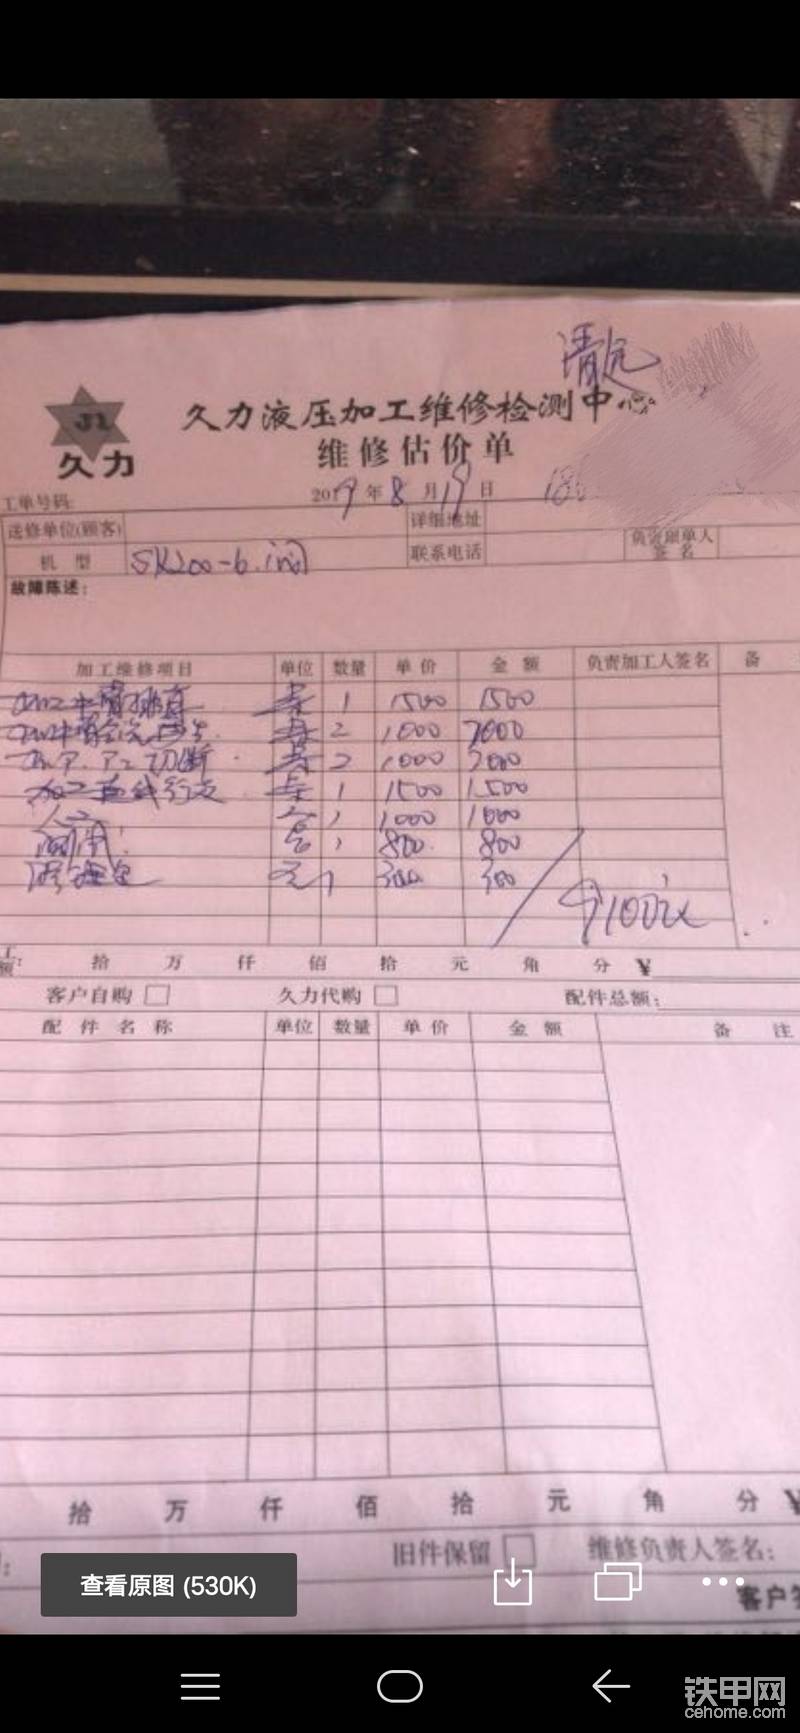 清远
久力液压加工维修检测中心
久力
维修估价单
工单号码:
2019年8月19日
送修单位(顾客)
详细地址
机 型
SK200-6.
联系电话
负责跟单人
签 名
故障陈述:
加工维修项目 单位 数量 单价 金额 负责加工人签名 备
1 1500 1500
2 1000 2000
切断 2 1000 2000
加工直线行走 1 1500 1500
1 1000 1000
1 800 800
1 300 300
9100
拾 万 仟 佰 拾 元 角 分 ¥
客户自购 久力代购 配件总额:
配件名称 单位 数量 单价 金额 备 注
拾 万 仟 佰 拾 元 角 分 ¥
旧件保留 维修负责人签名:
查看原图 (530K)
客户
铁甲网
cehome.com